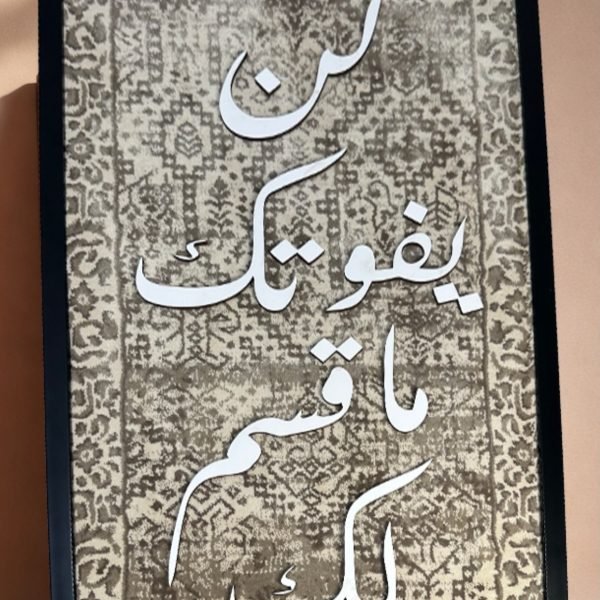 لن
يفوتك
ما قسم
لك